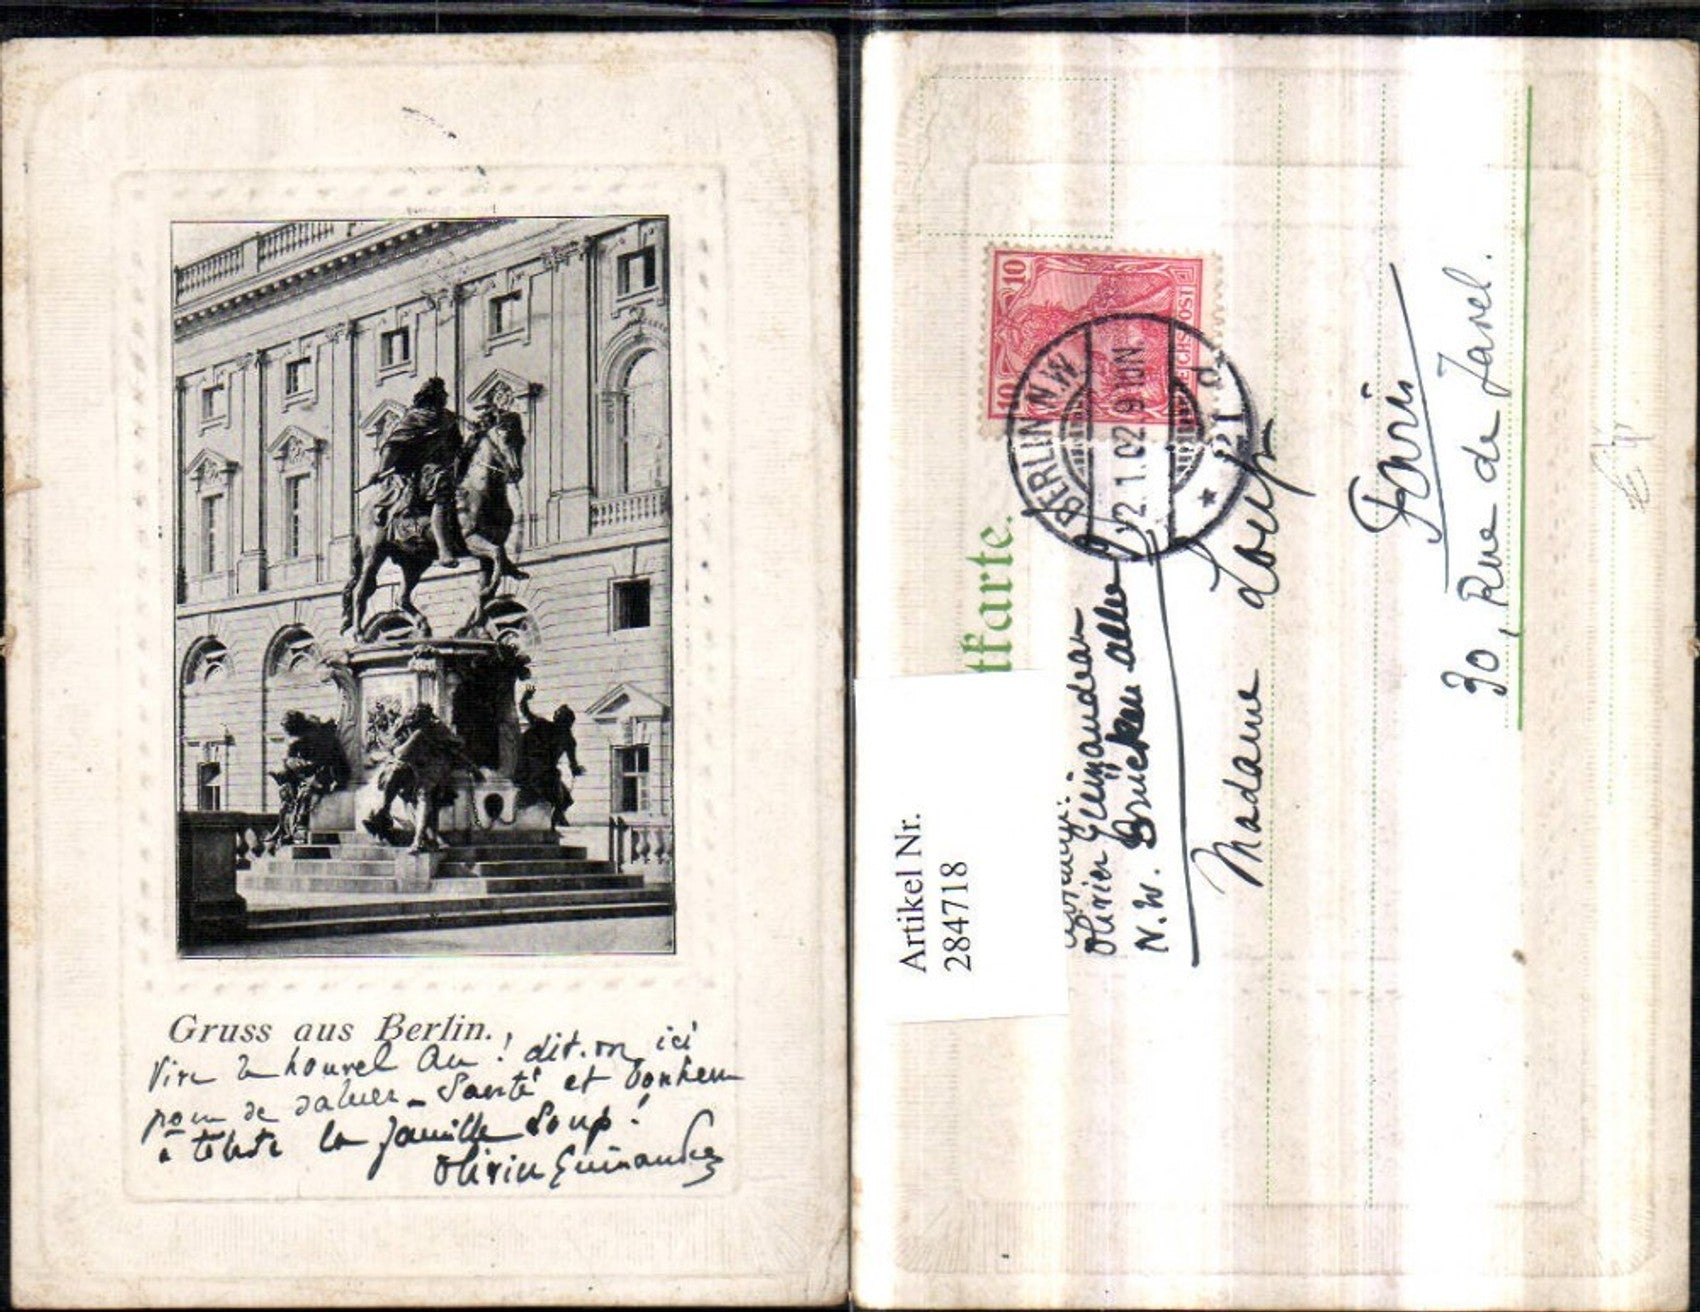 Gruss aus Berlin.
Vive le nouvel An! dit-on ici
pour se saluer - Santé et bonheur
à toute la famille Loup!
Olivier
tkarte.
10
10
REICHSPOST
BERLIN N.W.
2.1.02. 9-10N.
* 21 d
Olivier
N.W. Brücken allee
Madame Loup
Paris
30, Rue de Javel.
Artikel Nr.
284718